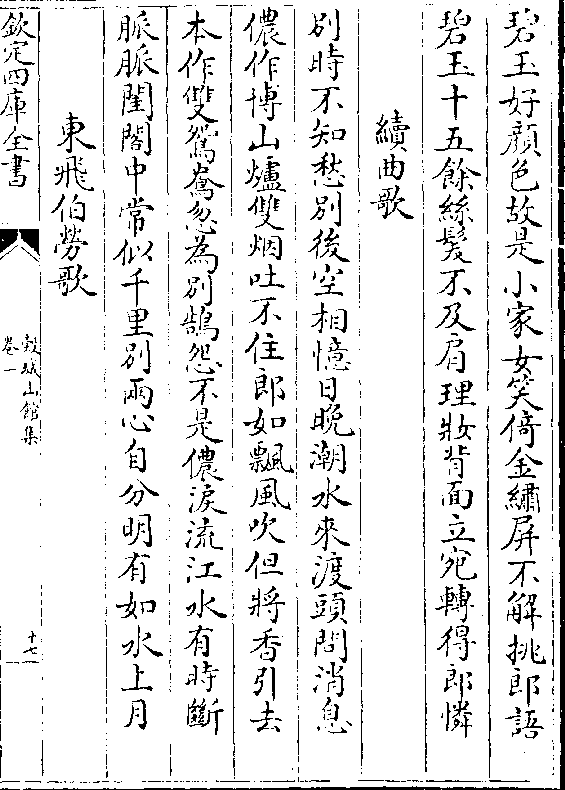 碧玉好顔色故是小家女笑倚金繡屏不解挑郎語
碧玉十五餘絲髮不及肩理妝背面立宛轉得郎憐
續曲歌
別時不知愁別後空相憶日晚潮水來渡頭問消息
儂作博山爐雙烟吐不住郎如飄風吹但將香引去
本作雙鴛鴦忽為別鵠怨不是儂淚流江水有時斷
脈脈閨閣中常似千里別兩心自分明有如水上月
東飛伯勞歌
欽定四庫全書
穀城山館集
卷一
十七